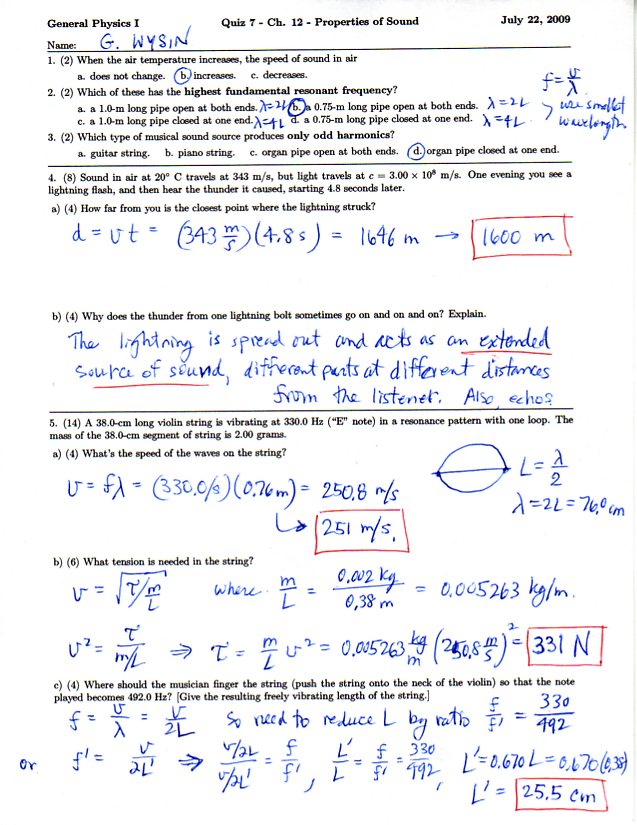 General Physics I Quiz 7 - Ch. 12 - Properties of Sound July 22, 2009
Name: G. WYSIN
1. (2) When the air temperature increases, the speed of sound in air
a. does not change. b. increases. c. decreases.
2. (2) Which of these has the highest fundamental resonant frequency? f = v/λ
a. a 1.0-m long pipe open at both ends. λ=2L b. a 0.75-m long pipe open at both ends. λ=2L
c. a 1.0-m long pipe closed at one end. λ=4L d. a 0.75-m long pipe closed at one end. λ=4L
use smallest wavelength
3. (2) Which type of musical sound source produces only odd harmonics?
a. guitar string. b. piano string. c. organ pipe open at both ends. d. organ pipe closed at one end.
4. (8) Sound in air at 20° C travels at 343 m/s, but light travels at c = 3.00 × 10⁸ m/s. One evening you see a
lightning flash, and then hear the thunder it caused, starting 4.8 seconds later.
a) (4) How far from you is the closest point where the lightning struck?
d = vt = (343 m/s)(4.8 s) = 1646 m → 1600 m
b) (4) Why does the thunder from one lightning bolt sometimes go on and on and on? Explain.
The lightning is spread out and acts as an extended
source of sound, different parts at different distances
from the listener. Also, echo?
5. (14) A 38.0-cm long violin string is vibrating at 330.0 Hz ("E" note) in a resonance pattern with one loop. The
mass of the 38.0-cm segment of string is 2.00 grams.
a) (4) What's the speed of the waves on the string?
L = λ/2
v = fλ = (330.0/s)(0.76m) = 250.8 m/s
λ=2L=76.0 cm
↳ 251 m/s.
b) (6) What tension is needed in the string?
v = √(τ/(m/L)) where m/L = 0.002 kg/0.38 m = 0.005263 kg/m.
v² = τ/(m/L) ⇒ τ = m/L v² = 0.005263 kg/m (250.8 m/s)² = 331 N
c) (4) Where should the musician finger the string (push the string onto the neck of the violin) so that the note
played becomes 492.0 Hz? [Give the resulting freely vibrating length of the string.]
f = v/λ = v/2L So need to reduce L by ratio f/f' = 330/492
or f' = v/2L' ⇒ (v/2L)/(v/2L') = f/f', L'/L = f/f' = 330/492, L'=0.670L=0.670(0.38)
L' = 25.5 cm